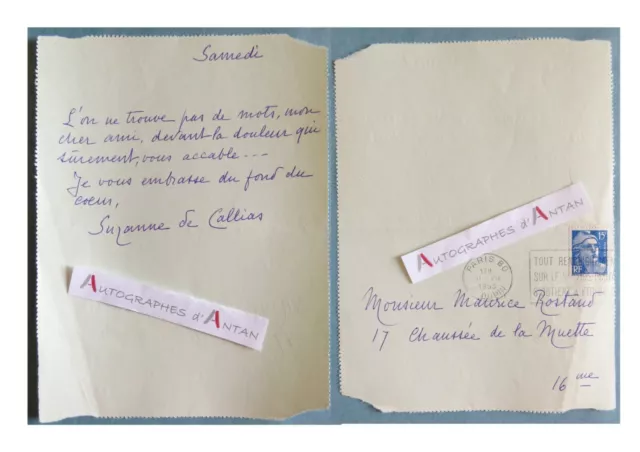 Samedi
L'on ne trouve pas de mots, mon
cher ami, devant la douleur qui
sûrement, vous accable...
Je vous embrasse du fond du
coeur,
Suzanne de Callias
AUTOGRAPHES d'ANTAN
AUTOGRAPHES d'ANTAN
15F
RF
PARIS 80
TOUT
SUR LE
Monsieur Maurice Rostand
17 Chaussée de la Muette
16me